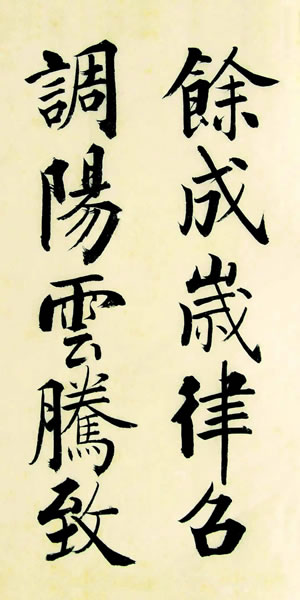 餘成歲律召
調陽雲騰致